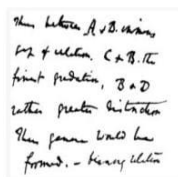 Thus between A & B. immens
gap of relation. C & B. the
finest gradation, B & D
rather greater distinction
Thus genera would be
formed. — bearing relation